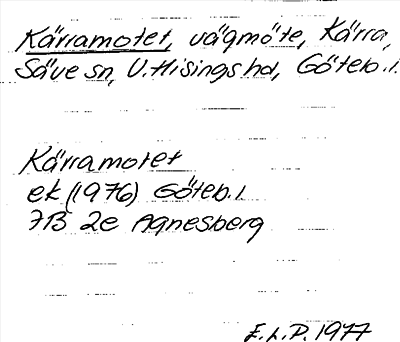 Kärramotet, vägmöte, Kärra,
Säve sn, V. Hisings hd, Göteb. l.
Kärramotet
ek (1976) Göteb. l.
7B 2e Agnesberg
E.L.P. 1977